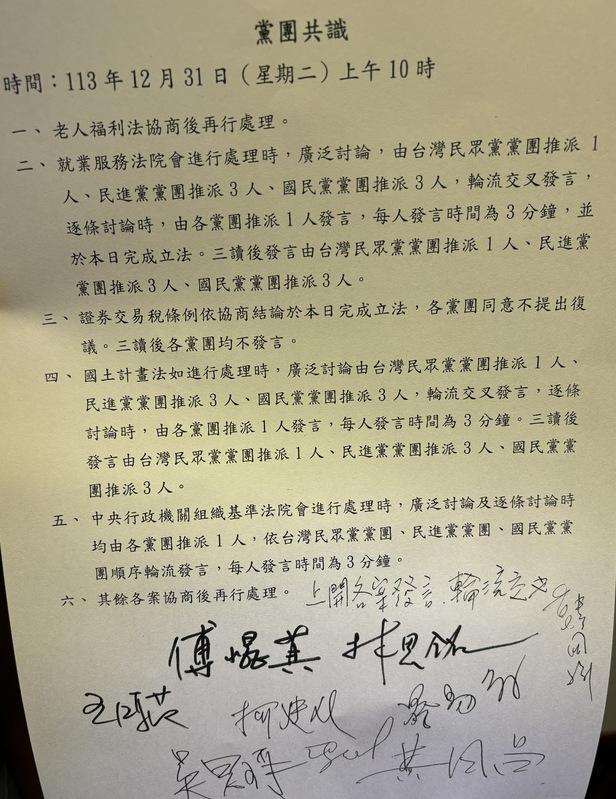 黨團共識
時間：113年12月31日（星期二）上午10時
一、老人福利法協商後再行處理。
二、就業服務法院會進行處理時，廣泛討論，由台灣民眾黨黨團推派1
人、民進黨黨團推派3人、國民黨黨團推派3人，輪流交叉發言，
逐條討論時，由各黨團推派1人發言，每人發言時間為3分鐘，並
於本日完成立法。三讀後發言由台灣民眾黨黨團推派1人、民進黨
黨團推派3人、國民黨黨團推派3人。
三、證券交易稅條例依協商結論於本日完成立法，各黨團同意不提出復
議。三讀後各黨團均不發言。
四、國土計畫法如進行處理時，廣泛討論由台灣民眾黨黨團推派1人、
民進黨黨團推派3人、國民黨黨團推派3人，輪流交叉發言，逐條
討論時，由各黨團推派1人發言，每人發言時間為3分鐘。三讀後
發言由台灣民眾黨黨團推派1人、民進黨黨團推派3人、國民黨黨
團推派3人。
五、中央行政機關組織基準法院會進行處理時，廣泛討論及逐條討論時
均由各黨團推派1人，依台灣民眾黨黨團、民進黨黨團、國民黨黨
團順序輪流發言，每人發言時間為3分鐘。
六、其餘各案協商後再行處理。上開各案發言，輪流交叉
傅崐萁 林思銘
柯建銘
黃國昌